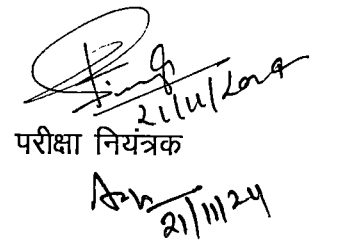 21/11/2024
परीक्षा नियंत्रक
21/11/24